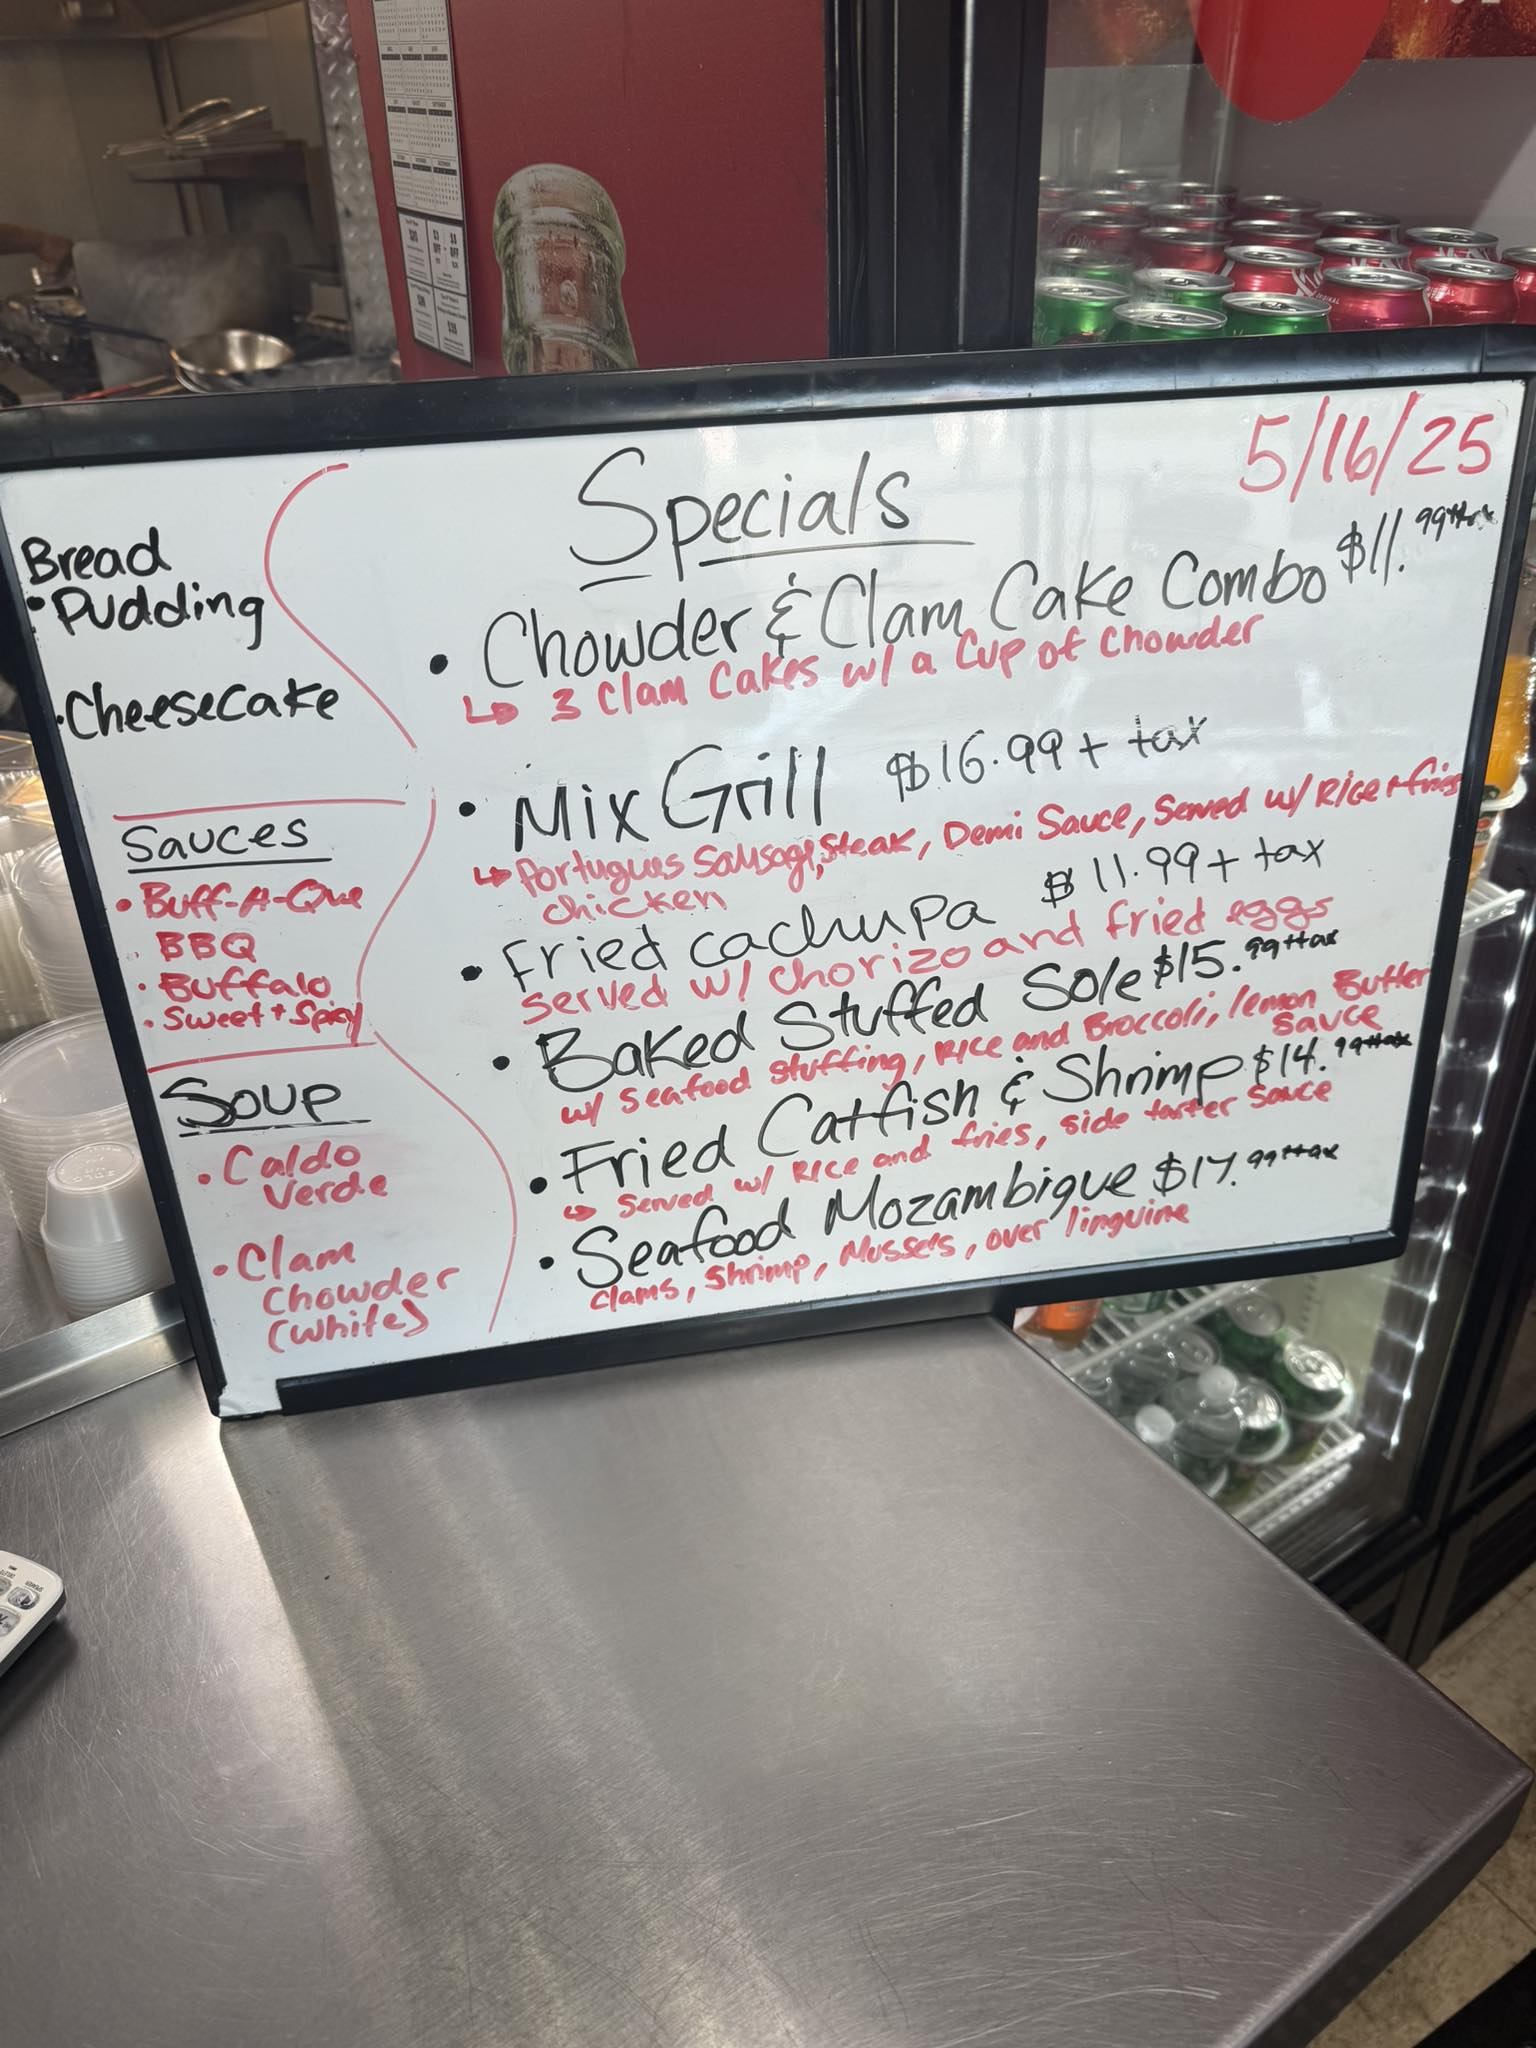 5/16/25
Specials
• Chowder & Clam Cake Combo $11.99+tax
↳ 3 Clam Cakes w/ a Cup of Chowder
• Mix Grill $16.99 + tax
↳ Portugues Sausage, Steak, Demi Sauce, Served w/ Rice + fries
chicken
• Fried cachupa $11.99 + tax
served w/ chorizo and fried eggs
• Baked Stuffed Sole $15.99+tax
w/ seafood stuffing, Rice and Broccoli, lemon Butter
sauce
• Fried Catfish & Shrimp $14.99+tax
↳ Served w/ Rice and fries, side tarter sauce
• Seafood Mozambique $17.99+tax
clams, shrimp, Mussels, over linguine
Bread
• Pudding
• Cheesecake
Sauces
• Buff-A-Que
• BBQ
• Buffalo
• Sweet + Spicy
Soup
• Caldo
Verde
• Clam
Chowder
(White)